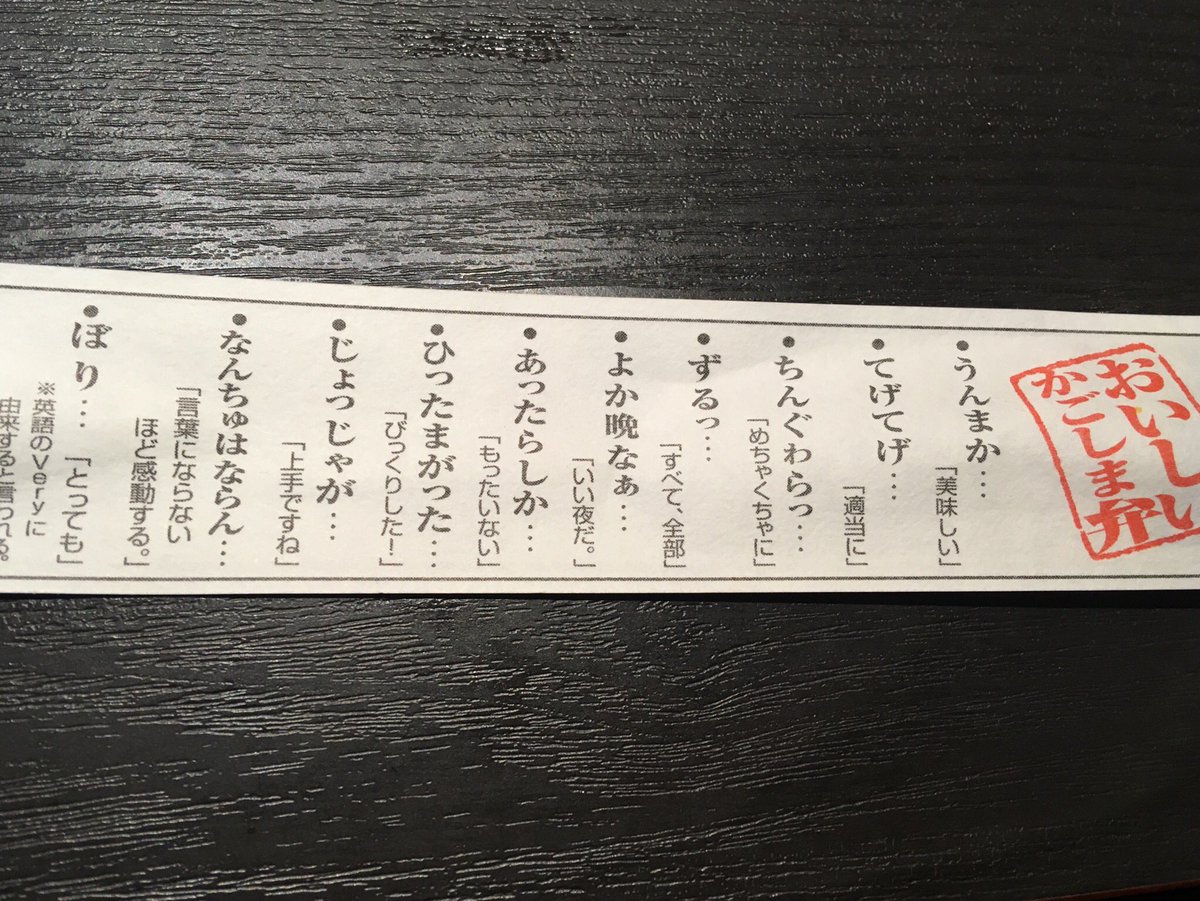 おいしい
かごしま弁
●うんまか…
「美味しい」
●てげてげ…
「適当に」
●ちんぐわらっ…
「めちゃくちゃに」
●ずるっ…
「すべて、全部」
●よか晩なぁ…
「いい夜だ。」
●あったらしか…
「もったいない」
●ひったまがった…
「びっくりした！」
●じょっじゃが…
「上手ですね」
●なんちゅはならん…
「言葉にならない
ほど感動する。」
●ぼり…「とっても」
※英語のVeryに
由来すると言われる。